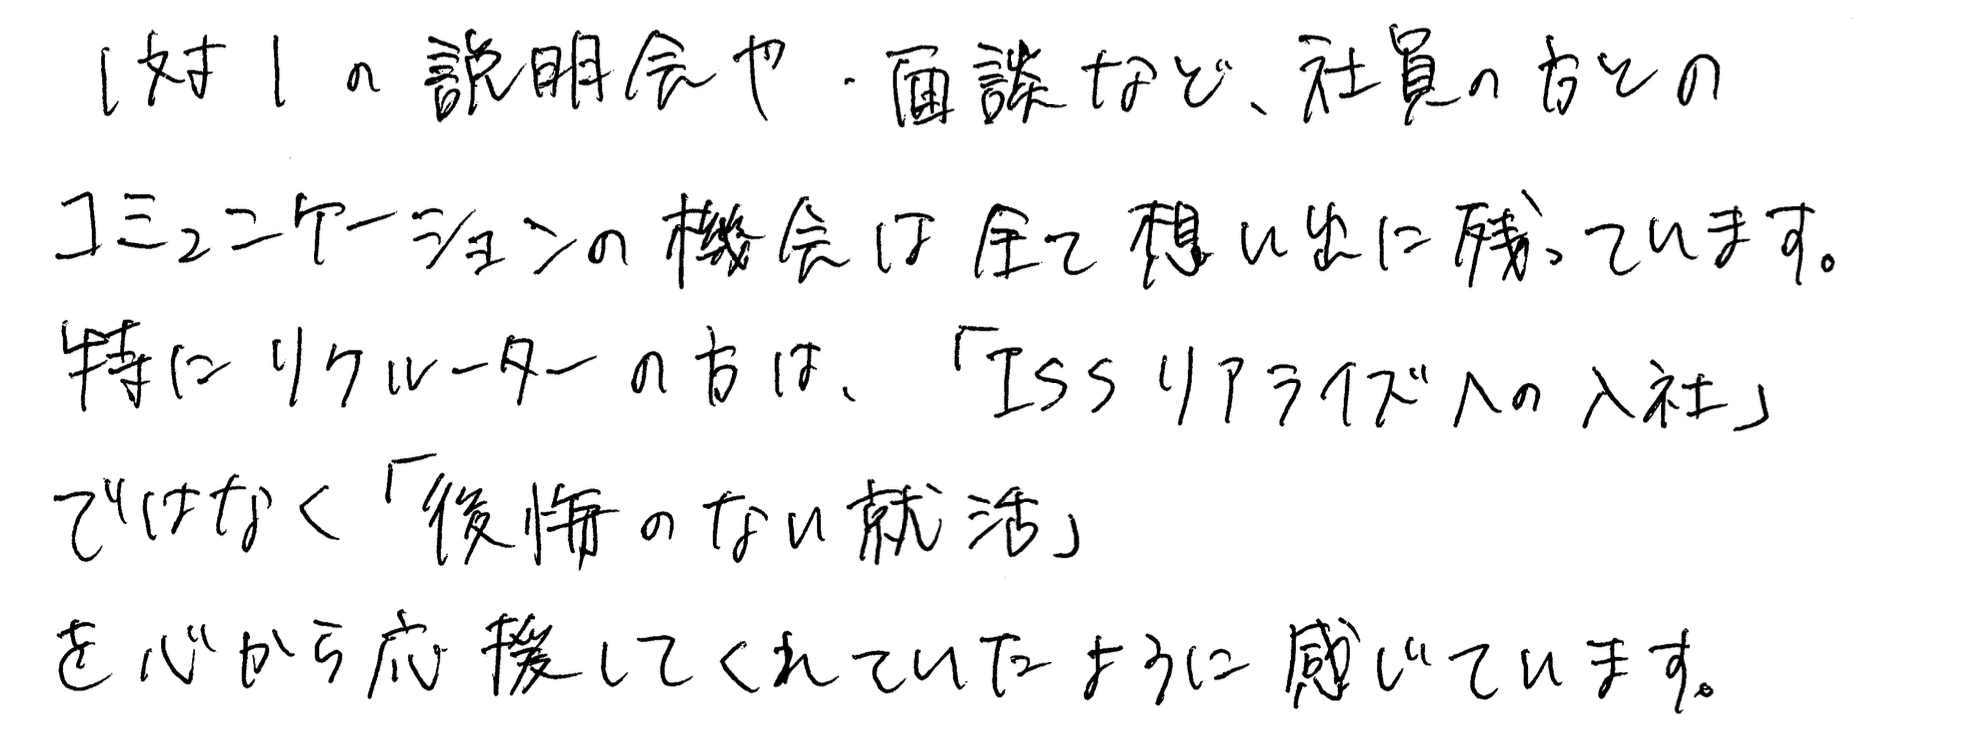 1対1の説明会や・面談など、社員の方との
コミュニケーションの機会は全て想い出に残っています。
特にリクルーターの方は、「ISSリアライズへの入社」
ではなく「後悔のない就活」
を心から応援してくれていたように感じています。